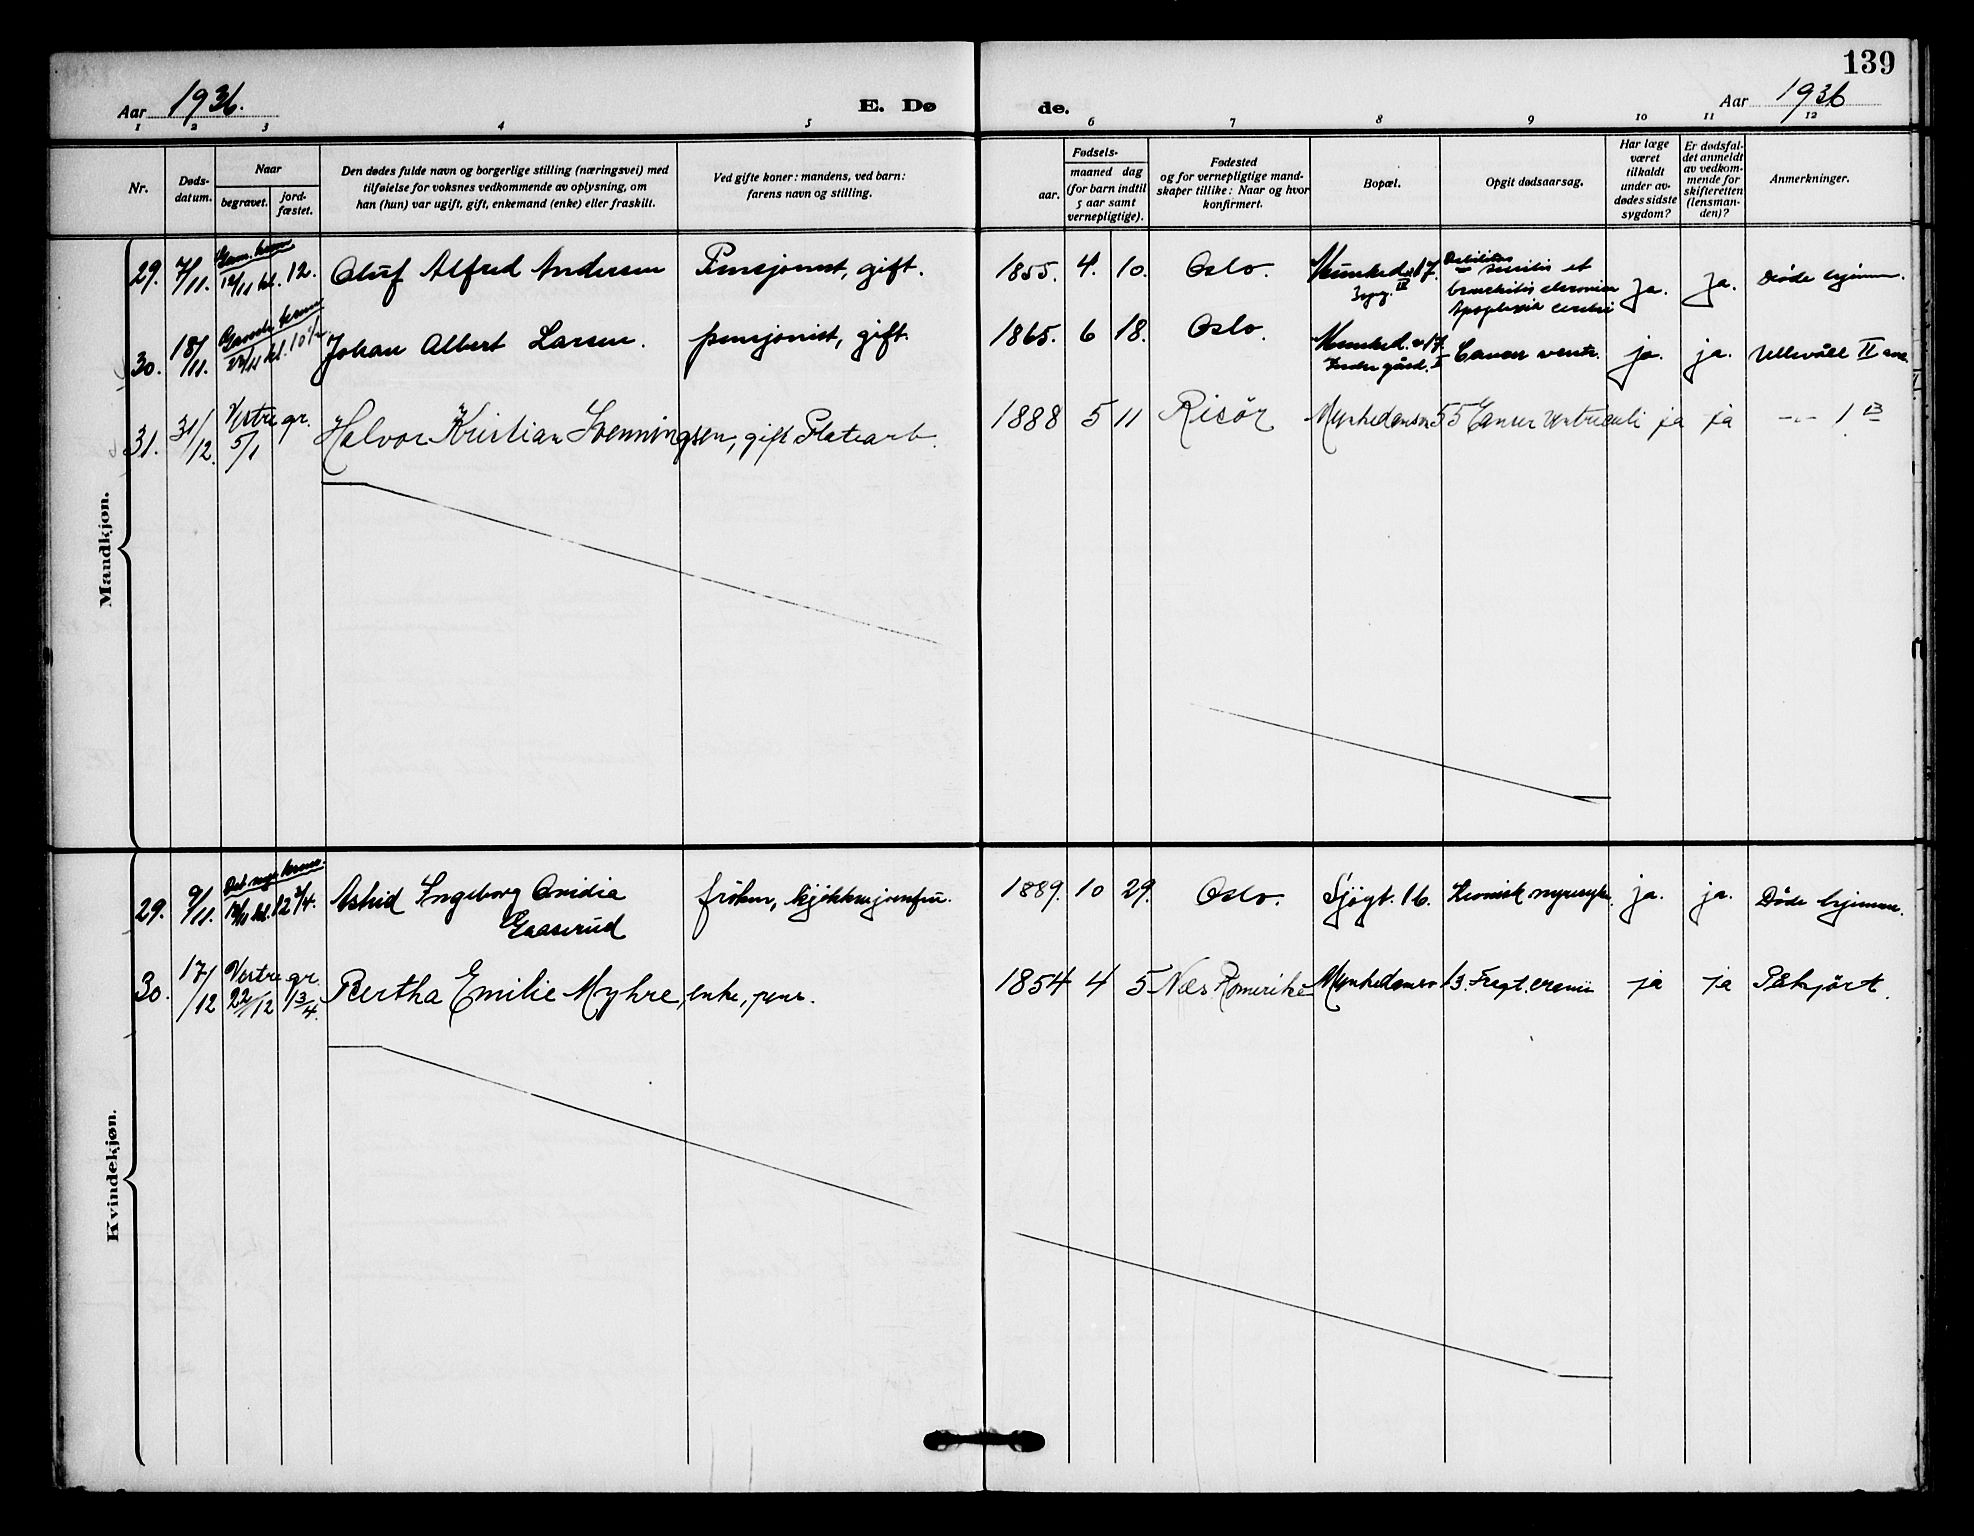 139
Aar 1936. E. Dø de. Aar 1936
1 2 3 4 5 6 7 8 9 10 11 12
Nr.
Døds-
datum.
Naar
begravet.
jord-
fæstet.
Den dødes fulde navn og borgerlige stilling (næringsvei) med
tilføielse for voksnes vedkommende av oplysning, om
han (hun) var ugift, gift, enkemand (enke) eller fraskilt.
Ved gifte koner: mandens, ved barn:
farens navn og stilling.
Fødsels-
aar.
maaned dag
(for barn indtil
5 aar samt
vernepligtige).
Fødested
og for vernepligtige mand-
skaper tillike: Naar og hvor
konfirmert.
Bopæl.
Opgit dødsaarsag.
Har læge
været
tilkaldt
under av-
dødes sidste
sygdom?
Er dødsfal-
det anmeldt
av vedkom-
mende for
skifteretten
(lensman-
den)?
Anmerkninger.
Mandkjøn.
29. 7/11. Gam. krem 12/11 kl. 12. Oluf Alfred Andersen Pensjonist, gift. 1855. 4. 10. Oslo. Munkedv. 17. IV Debilitas senilis et
bronchitis chronica
Apoplexia cerebri Ja. Ja. Døde hjemme.
30. 18/11. Gamle krem 23/11 kl. 10 1/2 Johan Albert Larsen. pensjonist, gift. 1865. 6 18. Oslo. Munked.v 17.
Indre gård. I Cancer ventr. ja. ja. Ullevåll II avd.
31. 31/12. Vestre gr. 5/1 Halvor Kristian Svenningsen, gift Platearb. 1888 5 11 Risör Munkedamsv 55 Cancer Ventriculi ja ja -"- 1 B
Kvindekjøn.
29. 9/11. Det nye krem. 13/11 kl. 12 3/4. Astrid Ingeborg Ovidia
Gaaserud fröken, kjøkkensjomfru. 1889. 10 29. Oslo. Sjögt. 16. Kronisk nyresyke. ja. ja. Døde hjemme.
30. 17/12 Vestre gr. 22/12 1 3/4. Bertha Emilie Myhre, enke, pens. 1854 4 5 Næs Romerike Munkedamsv 13. Fragt. cranii ja ja Påkjørt.